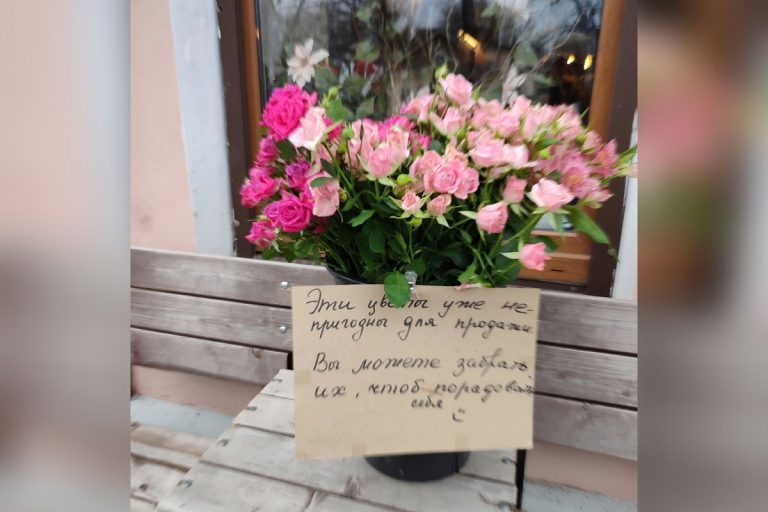 Эти цветы уже не-
пригодны для продажи
Вы можете забрать
их, чтоб порадовать
себя